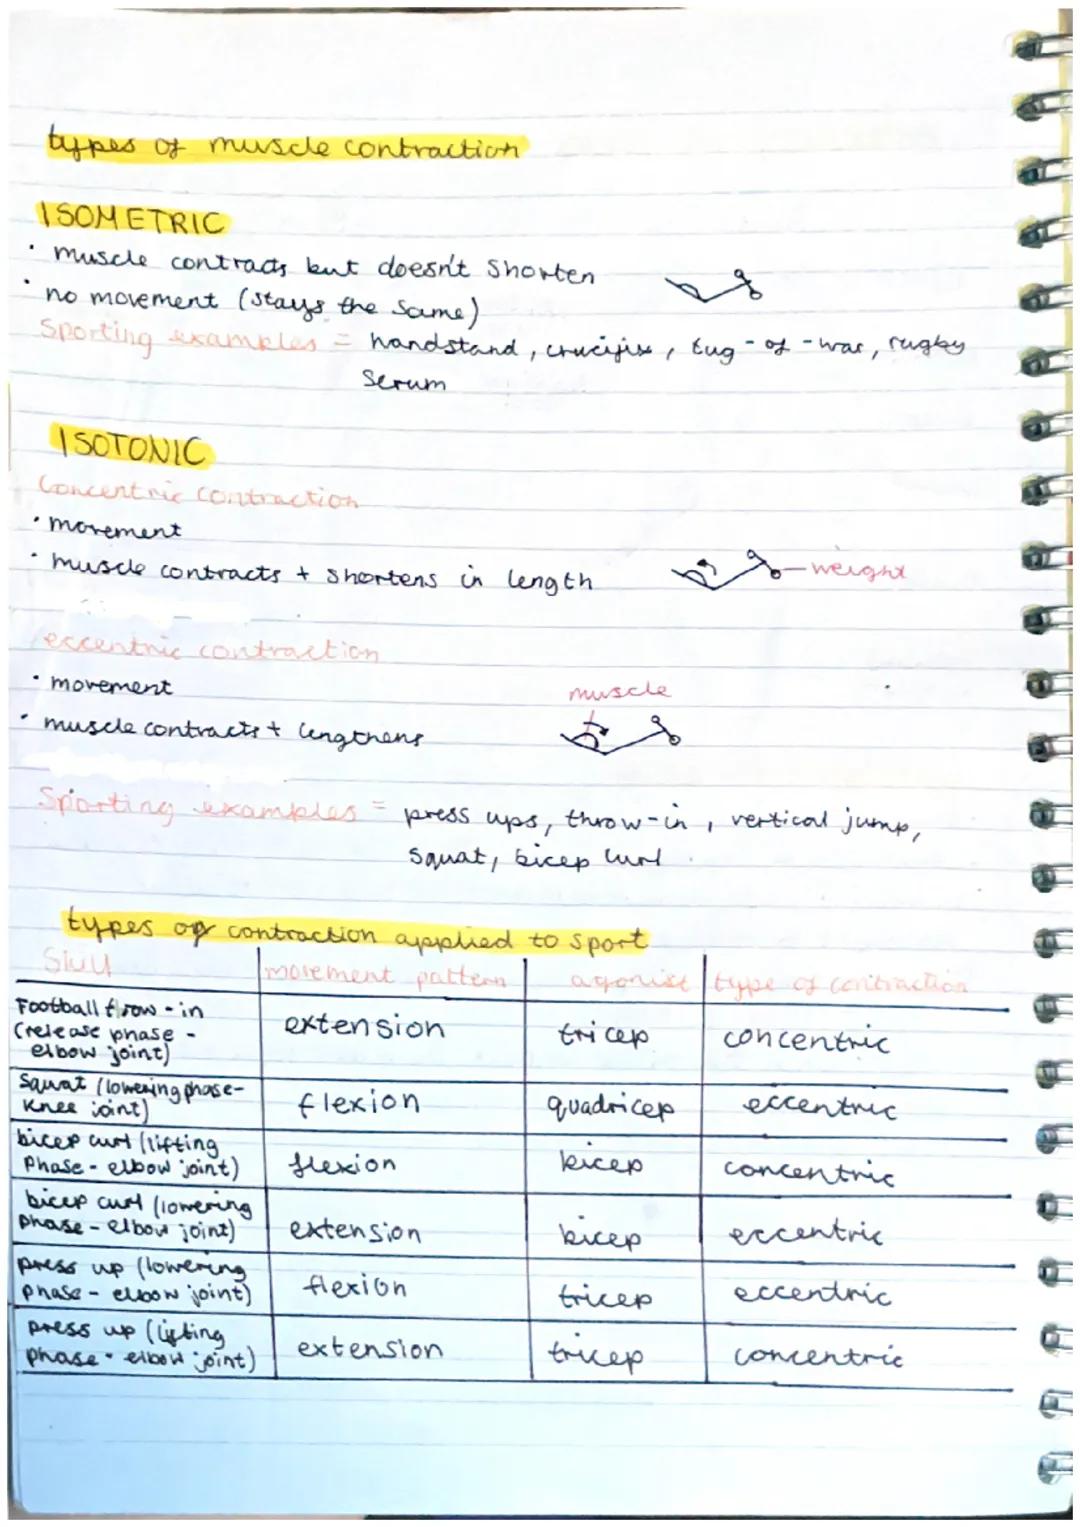 types of muscle contraction
ISOMETRIC
• muscle contracts but doesn't shorten
• no movement (stays the same)
Sporting examples = handstand, crucifix, tug-of-war, rugby
scrum
ISOTONIC
Concentric contraction
• movement
• muscle contracts + shortens in length
weight
eccentric contraction
• movement
muscle
• muscle contracts + lengthens
Sporting examples = press ups, throw-in, vertical jump,
squat, bicep curl
types of contraction applied to sport
Skill movement pattern agonist type of contraction
Football throw-in
(release phase - extension tricep concentric
elbow joint)
Squat (lowering phase-
knee joint) flexion quadricep eccentric
bicep curl (lifting
phase - elbow joint) flexion bicep concentric
bicep curl (lowering
phase - elbow joint) extension bicep eccentric
press up (lowering
phase - elbow joint) flexion tricep eccentric
press up (lifting
phase - elbow joint) extension tricep concentric